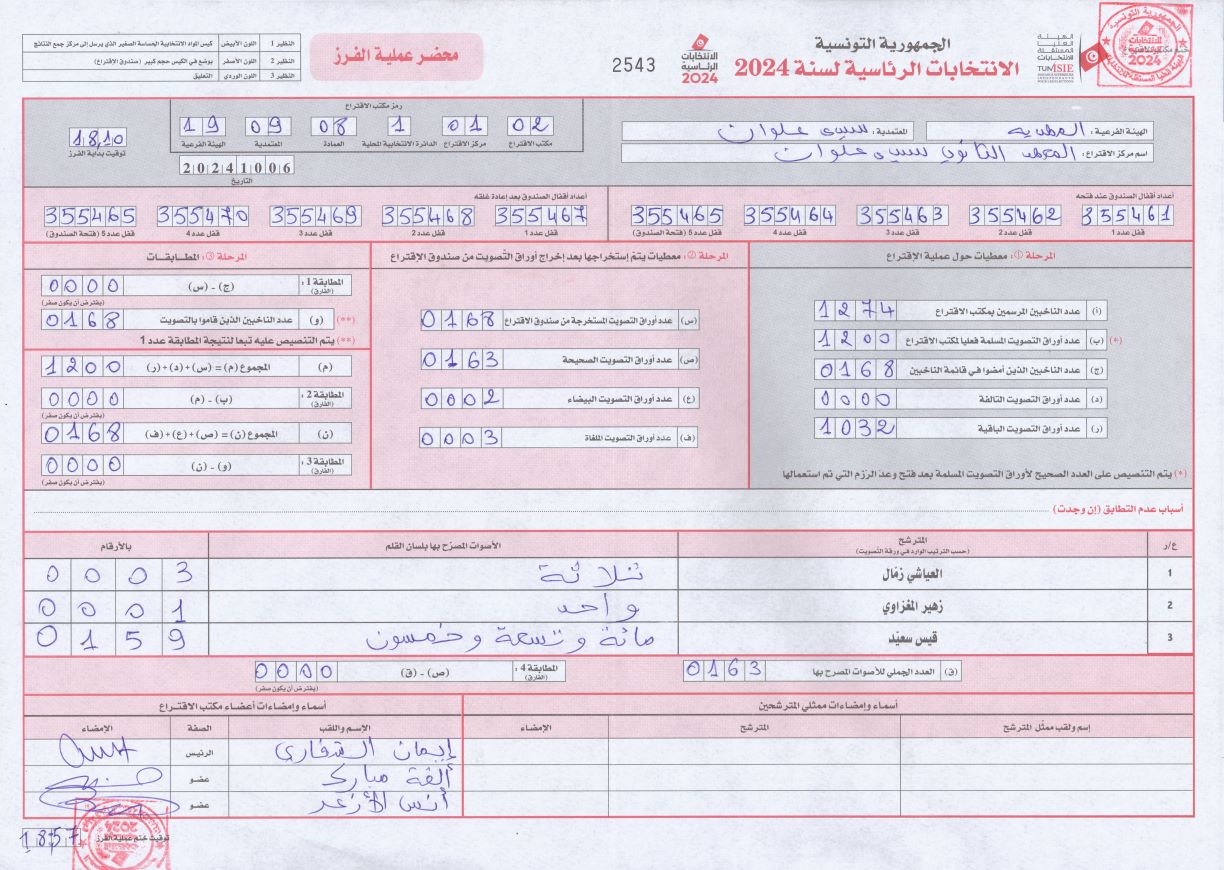 الجمهورية التونسية
الانتخابات الرئاسية لسنة 2024
الهيئة العليا المستقلة للانتخابات
TUNISIE
الانتخابات الرئاسية 2024
2543
محضر عملية الفرز
النظير 1 اللون الأبيض كيس المواد الانتخابية الحساسة الصغير الذي يرسل إلى مركز جمع النتائج
النظير 2 اللون الأصفر يوضع في الكيس حجم كبير (صندوق الإقتراع)
النظير 3 اللون الوردي التعليق
الهيئة الفرعية: المهدية
المعتمدية: سيدي علوان
اسم مركز الاقتراع: المعهد الثانوي سيدي علوان
رمز مكتب الاقتراع
02 01 1 08 09 19
مكتب الاقتراع مركز الاقتراع الدائرة الانتخابية المحلية العمادة المعتمدية الهيئة الفرعية
20241006
التاريخ
18,10
توقيت بداية الفرز
أعداد أقفال الصندوق عند فتحه
355461 355462 355463 355464 355465
قفل عدد 1 قفل عدد 2 قفل عدد 3 قفل عدد 4 قفل عدد 5 (فتحة الصندوق)
أعداد أقفال الصندوق بعد إعادة غلقه
355467 355468 355469 355470 355465
قفل عدد 1 قفل عدد 2 قفل عدد 3 قفل عدد 4 قفل عدد 5 (فتحة الصندوق)
المرحلة ①: معطيات حول عملية الإقتراع
(أ) عدد الناخبين المرسمين بمكتب الاقتراع 1274
(*) (ب) عدد أوراق التصويت المسلمة فعليا لمكتب الاقتراع 1200
(ج) عدد الناخبين الذين أمضوا في قائمة الناخبين 0168
(د) عدد أوراق التصويت التالفة 0000
(ر) عدد أوراق التصويت الباقية 1032
(*) يتم التنصيص على العدد الصحيح لأوراق التصويت المسلمة بعد فتح وعد الرزم التي تم استعمالها
المرحلة ②: معطيات يتم إستخراجها بعد إخراج أوراق التصويت من صندوق الإقتراع
(س) عدد أوراق التصويت المستخرجة من صندوق الاقتراع 0168
(ص) عدد أوراق التصويت الصحيحة 0163
(ع) عدد أوراق التصويت البيضاء 0002
(ف) عدد أوراق التصويت الملغاة 0003
المرحلة ③: المطابقات
المطابقة 1: (الفارق) (ج) - (س) 0000
(يفترض أن يكون صفر)
(**) (و) عدد الناخبين الذين قاموا بالتصويت 0168
(**) يتم التنصيص عليه تبعا لنتيجة المطابقة عدد 1
(م) المجموع (م) = (س) + (د) + (ر) 1200
المطابقة 2: (الفارق) (ب) - (م) 0000
(يفترض أن يكون صفر)
(ن) المجموع (ن) = (ص) + (ع) + (ف) 0168
المطابقة 3: (الفارق) (و) - (ن) 0000
(يفترض أن يكون صفر)
أسباب عدم التطابق (إن وجدت)
ع/ر المترشح (حسب الترتيب الوارد في ورقة التصويت) الأصوات المصرح بها بلسان القلم بالأرقام
1 العياشي زمال ثلاثة 0003
2 زهير المغزاوي واحد 0001
3 قيس سعيد مائة وتسعة وخمسون 0159
(ق) العدد الجملي للأصوات المصرح بها 0163
المطابقة 4: (الفارق) (ص) - (ق) 0000
(يفترض أن يكون صفر)
أسماء وإمضاءات ممثلي المترشحين
إسم ولقب ممثل المترشح المترشح الإمضاء
أسماء وإمضاءات أعضاء مكتب الاقتراع
الإسم واللقب الصفة الإمضاء
إيمان الشقاري الرئيس
ألفة مبارك عضو
أنس الأزعر عضو
توقيت ختم عملية الفرز 18,57